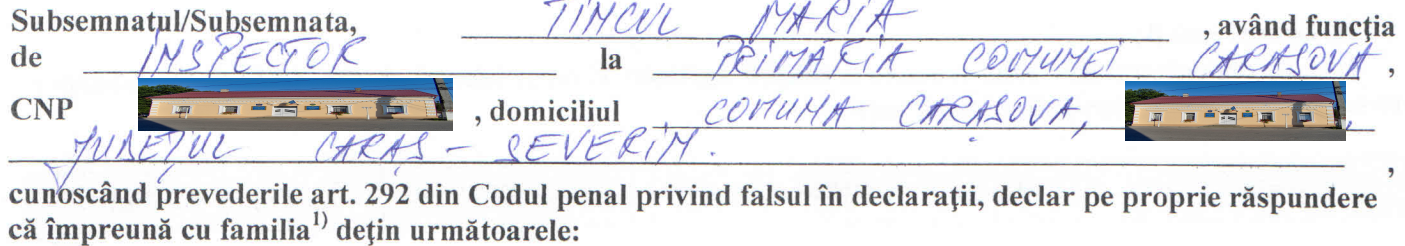 Subsemnatul/Subsemnata, TIMCUL MARIA , având funcţia
de INSPECTOR la PRIMARIA COMUNEI CARASOVA ,
CNP , domiciliul COMUNA CARASOVA, ,
JUDEŢUL CARAŞ - SEVERIN. ,
cunoscând prevederile art. 292 din Codul penal privind falsul în declaraţii, declar pe proprie răspundere
că împreună cu familia1) deţin următoarele: